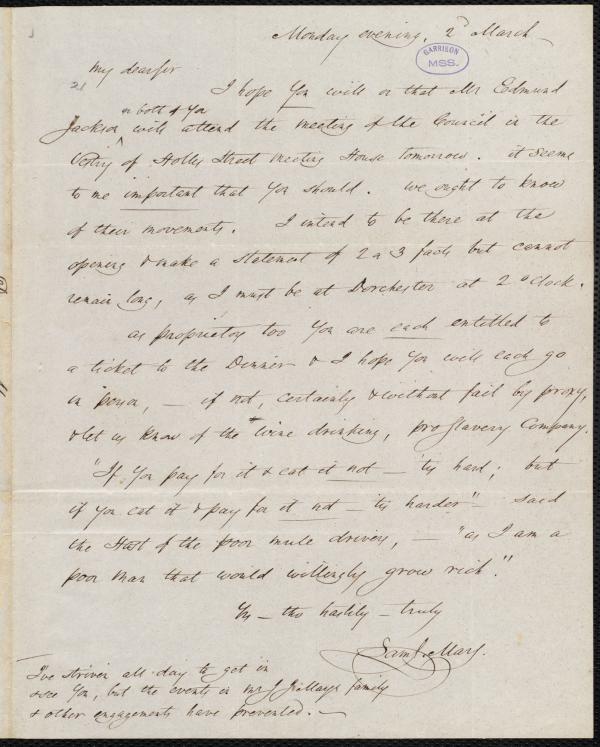 Monday evening, 2d March
GARRISON
MSS.
My dear sir
21
I hope You will or that Mr Edmund
or both of You
Jackson will attend the meeting of the Council in the
Vestry of Hollis Street Meeting House tomorrow. it seems
to me important that You should. we ought to know
of their movements. I intend to be there at the
opening & make a statement of 2 a 3 facts but cannot
remain long, as I must be at Dorchester at 2 oClock.
as proprietors too You are each entitled to
a ticket to the Dinner & I hope You will each go
in person, — if not, certainly & without fail by proxy,
& let us know of the wine drinking, pro slavery Company.
"If You pay for it & eat it not — 'tis hard; but
if you eat it & pay for it not — 'tis harder" — said
the Host of the poor mule drivers, — "as I am a
poor man that would willingly grow rich."
Yrs — tho hastily — truly
Saml. May.
I've striven all day to get in
& see You, but the events in Mr S J May's family
& other engagements have prevented. —